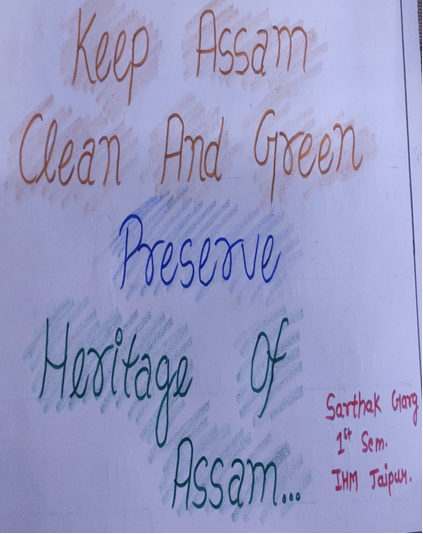 Keep Assam
Clean And Green
Preserve
Heritage Of
Assam...
Sarthak Garg
1st Sem.
IHM Jaipur.